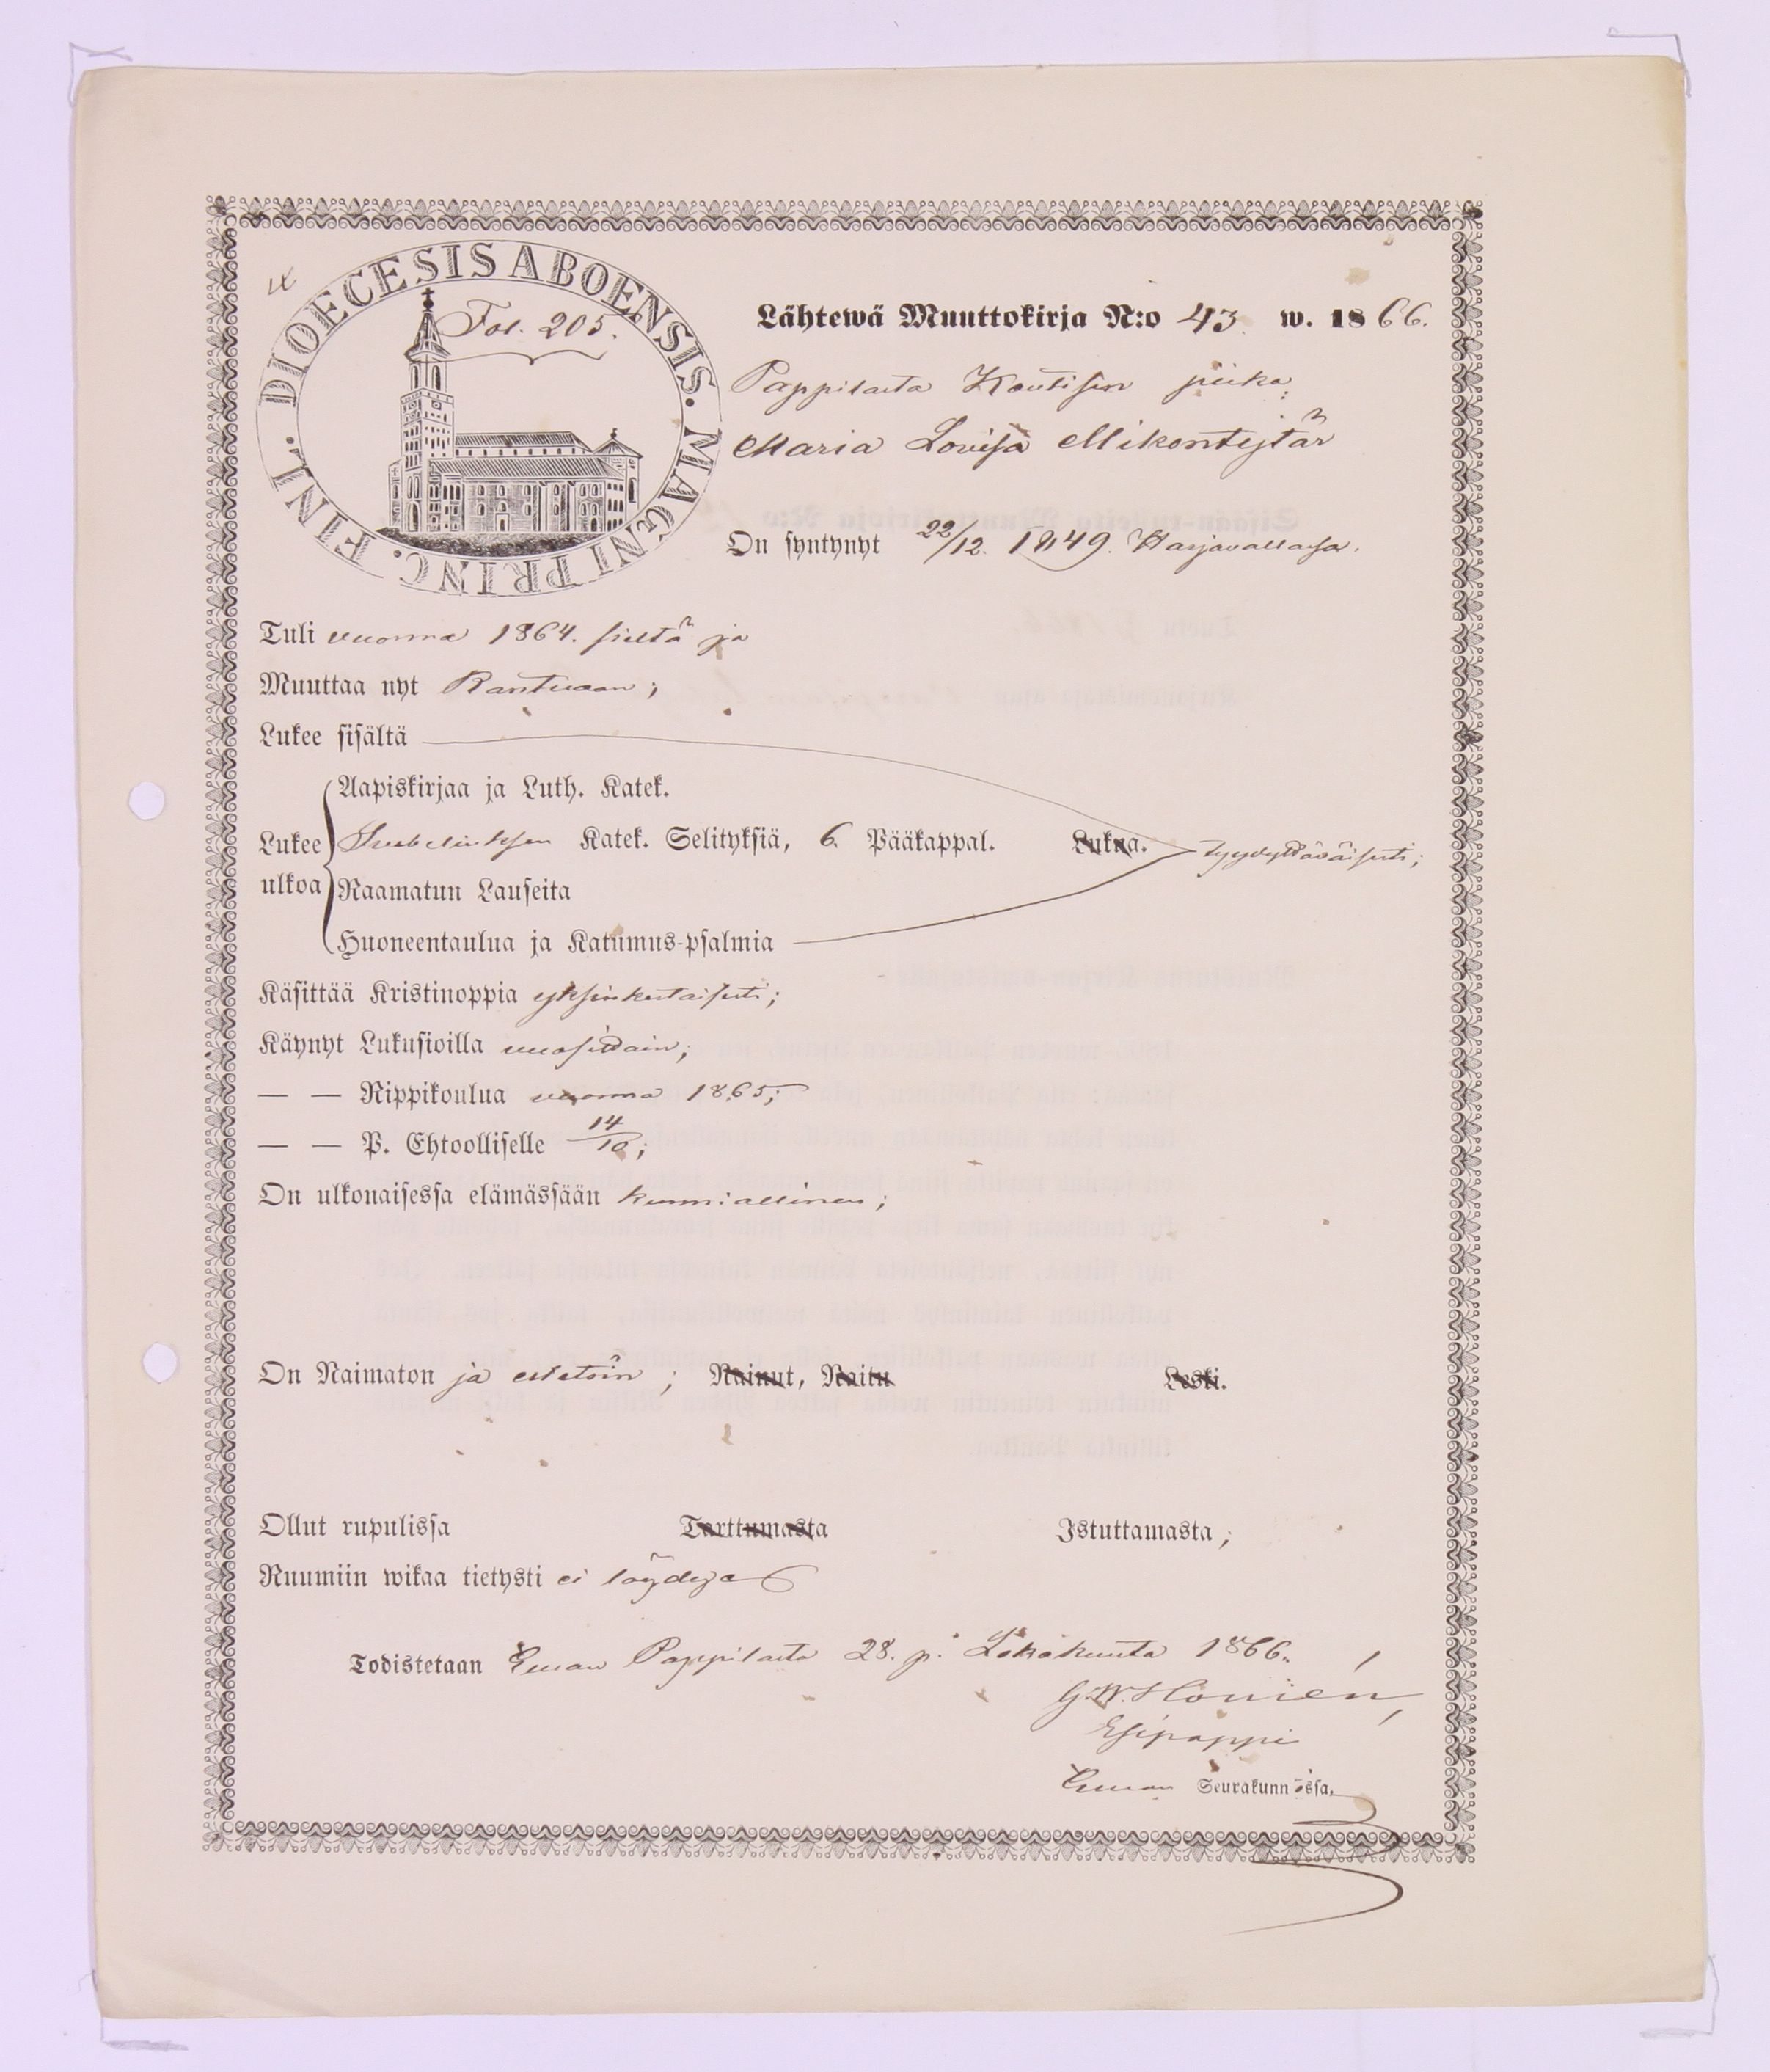 DIOECESIS ABOENSIS. MAGNI PRINC. FINL.
Fol. 205.
Lähtewä Muuttokirja N:o 43. w. 1866.
Pappilasta Kautisen piika
Maria Lovisa Mikontytär
On syntynyt 22/12. 1849. Harjavallassa.
Tuli vuonna 1864. sieltä ja
Muuttaa nyt Rantuaan;
Lukee sisältä
Lukee ulkoa
Aapiskirjaa ja Luth. Katek.
Svebeliuksen Katek. Selityksiä, 6. Pääkappal. Lukua. tyydyttäväisesti;
Raamatun Lauseita
Huoneentaulua ja Katumus-psalmia
Käsittää Kristinoppia yksinkertaisesti;
Käynyt Lukusioilla vuosittain;
— — Rippikoulua vuonna 1865;
— — P. Ehtoolliselle 14/10;
On ulkonaisessa elämässään kunniallinen;
On Naimaton ja esteetöin; Nainut, Naitu Leski.
Ollut rupulissa Tarttumasta Istuttamasta;
Ruumiin wikaa tietysti ei löydy
Todistetaan Euran Pappilasta 28. p. Lokakuuta 1866.
Esipappi
Euran Seurakunnassa.